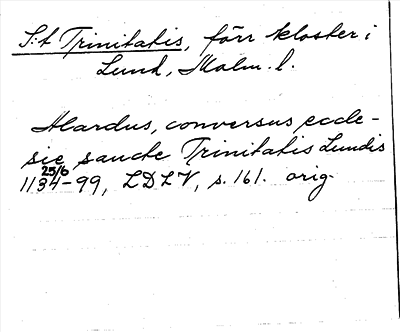 S:t Trinitatis, förr kloster i
Lund, Malm. l.
Alardus, conversus eccle-
sie sancte Trinitatis Lundis
25/6
1134-99, LDLV, s. 161. orig.